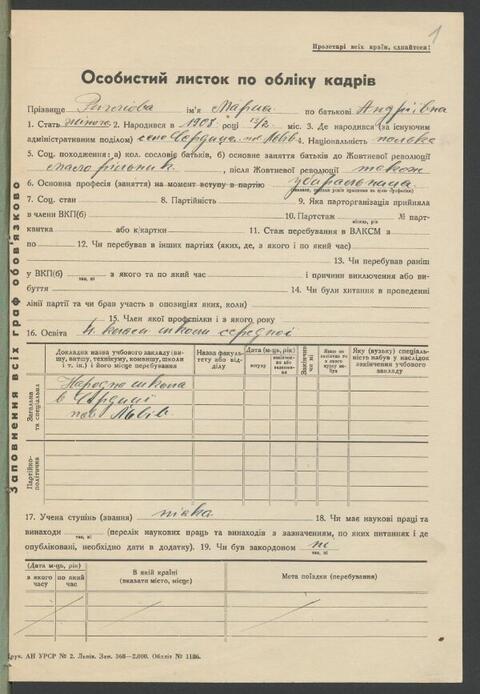 1
Пролетарі всіх країн, єднайтеся!
Особистий листок по обліку кадрів
Прізвище ім'я Марія по батькові Андріївна
1. Стать жіноча 2. Народився в 1908 році 12/2 міс. 3. Де народився (за існуючим
адміністративним поділом) село Сердиця пов. Львів 4. Національність полька
5. Соц. походження: а) кол. сословіє батьків, б) основне заняття батьків до Жовтневої революції
малорільник, після Жовтневої революції також
6. Основна професія (заняття) на момент вступу в партію убиральниця
7. Соц. стан 8. Партійність 9. Яка парторганізація прийняла
в члени ВКП(б) 10. Партстаж місяць, рік № парт-
квитка або к/картки 11. Стаж перебування в ВЛКСМ з
по 12. Чи перебував в інших партіях (яких, де, з якого і по який час)
13. Чи перебував раніш
у ВКП(б) так, ні з якого та по який час і причини виключення або ви-
буття 14. Чи були хитання в проведенні
лінії партії та чи брав участь в опозиціях яких, коли)
15. Член якої профспілки і з якого року
16. Освіта школи середної
Докладна назва учбового закладу (ви-
шу, втузу, технікуму, комвищу, школи
і т. ін.) і його місце перебування
Назва факуль-
тету або від-
ділу
Дата (м-ць, рік)
вступу
закінчен-
ня або
залишен-
ня
Закінчив
чи ні
Якщо не
закінчив то
з якого
курсу ви-
був
Яку (вузьку) спеціаль-
ність набув у наслідок
закінчення учбового
закладу
Загальна
та спеціальна
Народна школа
в Сердиці
пов Львів
Партійно-
політична
17. Учена ступінь (звання) ніяка 18. Чи має наукові праці та
винаходи так, ні (перелік наукових праць та винаходів з зазначенням, по яких питаннях і де
опубліковані, необхідно дати в додатку). 19. Чи був закордоном ні так, ні
(Дата м-ць, рік)
з якого
часу
по який
час
В якій країні
(вказати місто, місце)
Мета поїздки (перебування)
Друк. АН УРСР № 2. Львів. Зам. 368—2.000. Обліт № 1186.
Заповнення всіх граф обов'язково